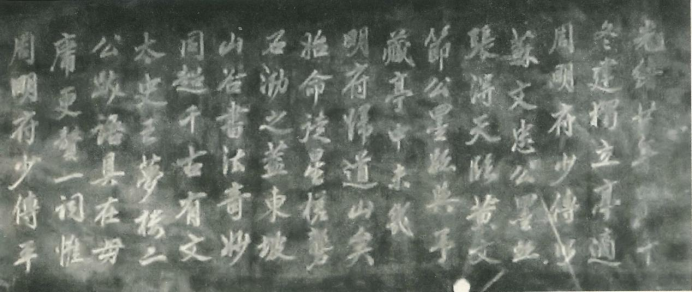 光緒廿年十
冬建立亭適
周明府少傅以
蘇文忠公墨
張得天臨黄文
節公墨跡共予
藏亭中未幾
明府歸道山矣
命星槎
石泐之蓋東坡
山谷書法奇妙
同千古有文
太史王夢樓二
公跋語具在毋
庸更贅一詞惟
周明府少傅平